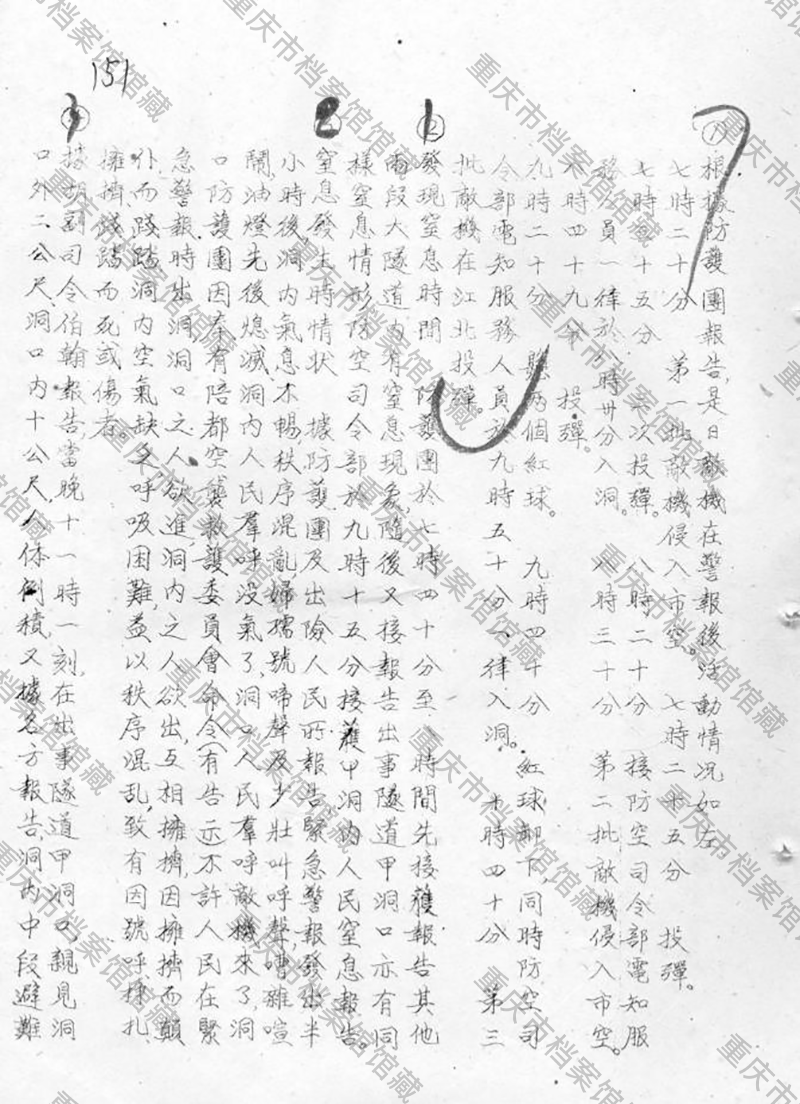 151
根據防護團報告,是日敵機在警報後活動情况如左
七時二十分 第一批敵機侵入市空。 七時二十五分 投彈。
七時 十五分 二次投彈。 八時二十分 接防空司令部電知服
務人員一律於八時卅分入洞。 八時三十分 第二批敵機侵入市空。
八時四十九分 投彈。
九時二十分 懸两個紅球。 九時四十分 紅球卸下,同時防空司
令部電知服務人員於九時五十分一律入洞。 十時四十分 第三
批敵機在江北投彈。
② 發現窒息時間 防護團於七時四十分至 時間先接獲報告其他
兩段大隧道内有窒息現象,隨後又接報告出事隧道甲洞口亦有同
樣窒息情形防空司令部於九時十五分接獲甲洞内人民窒息報告。
窒息發生時情狀 據防護團及出險人民所報告緊急警報發出半
小時後,洞内氣息不暢秩序混亂,婦孺號啼聲及少壯叫呼聲,嘈雜喧
鬧,油燈先後熄滅洞内人民羣呼没氣了,洞口人民羣呼敵機來了,洞
口防護團因奉有陪都空襲救護委員會命令(有告示不許人民在緊
急警報時出洞洞口之人欲進,洞内之人欲出,互相擁擠,因擁擠而顛
仆而踐踏洞内空氣缺乏,呼吸困難,益以秩序混乱,致有因號呼掙扎
擁擠踐踏而死或傷者。
據胡副司令伯翰報告當晚十一時一刻,在出事隧道甲洞口,親見洞
口外二公尺,洞口内十公尺,人体倒積,又據各方報告,洞内中段避難